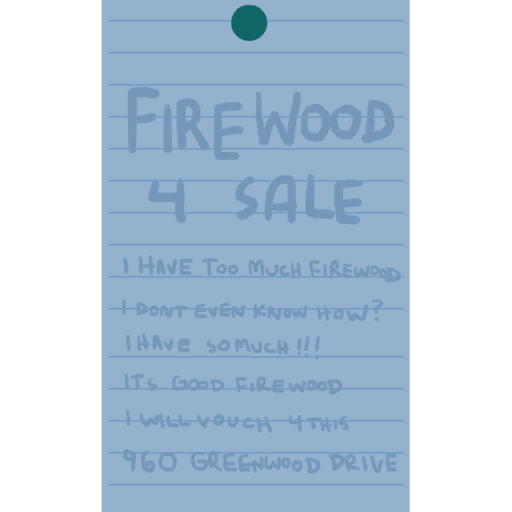 FIREWOOD
4 SALE
I HAVE TOO MUCH FIREWOOD
I DONT EVEN KNOW HOW?
I HAVE SO MUCH!!!
ITS GOOD FIREWOOD
I WILL VOUCH 4 THIS
960 GREENWOOD DRIVE